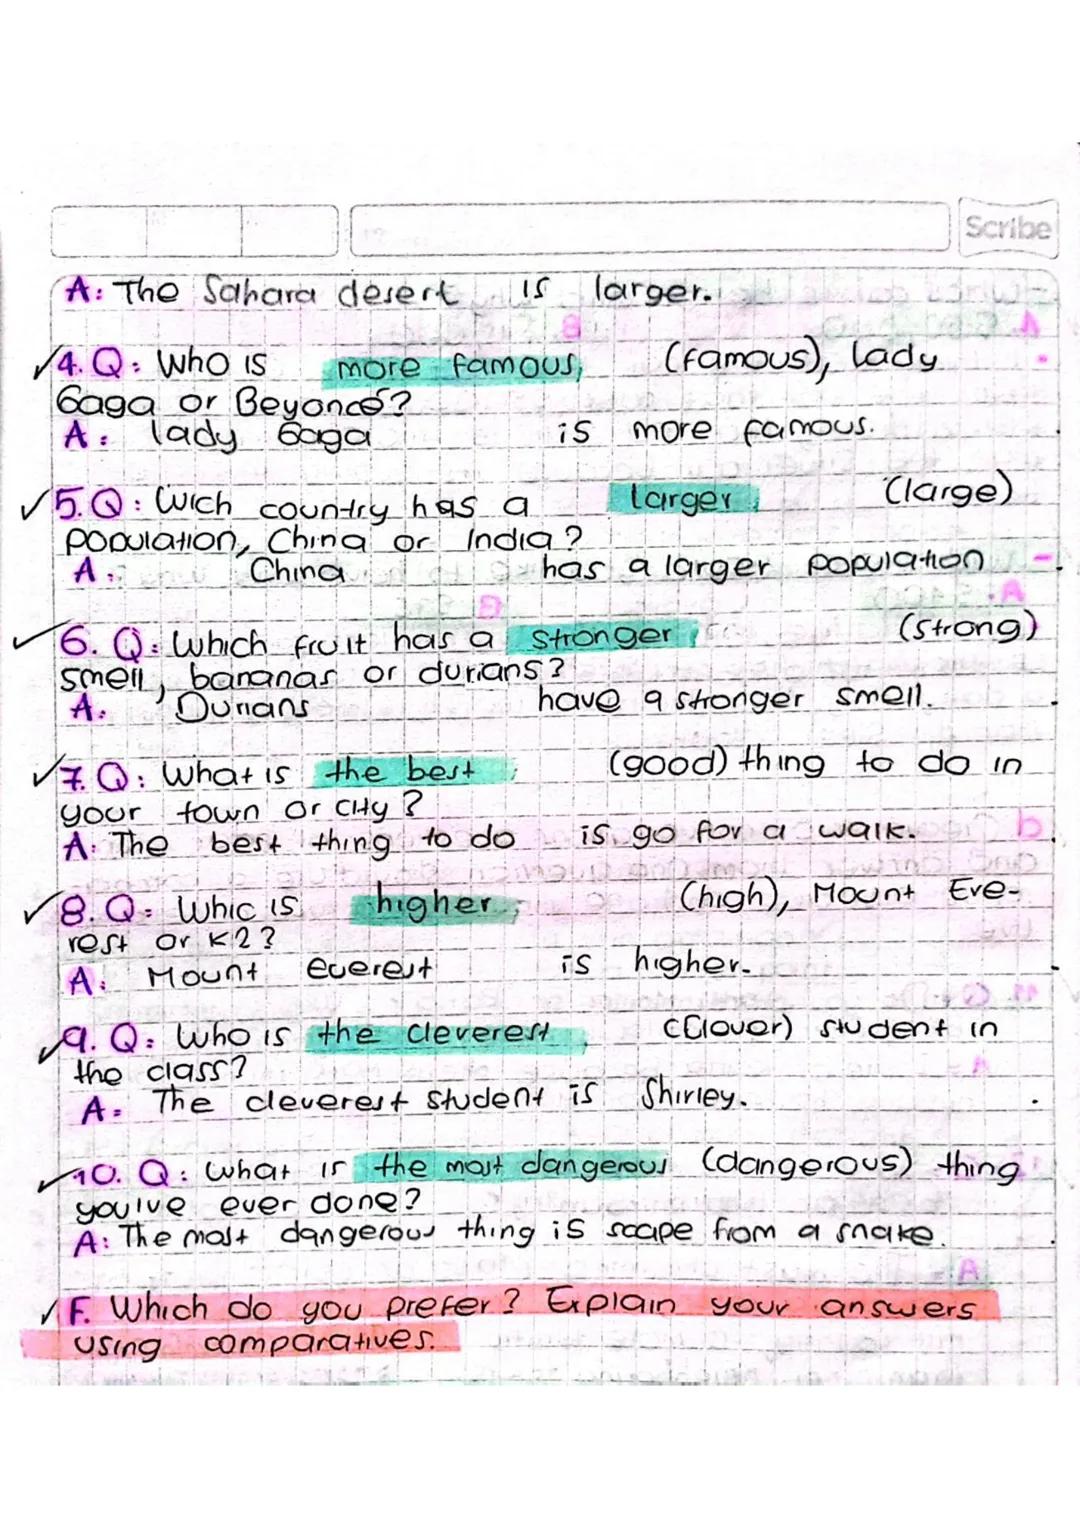 Scribe
A: The Sahara desert is larger.
4. Q: Who is more famous, (famous), lady
Gaga or Beyoncé?
A: lady Gaga is more famous.
5. Q: Wich country has a larger (large)
population, China or India?
A: China has a larger population
6. Q: Which fruit has a stronger (strong)
smell, bananas or durians?
A. Durians have a stronger smell.
7. Q: What is the best (good) thing to do in
your town or city?
A: The best thing to do is go for a walk.
8. Q: Whic is higher (high), Mount Eve-
rest or K2?
A. Mount everest is higher.
9. Q: Who is the cleverest (Clover) student in
the class?
A: The cleverest student is Shirley.
10. Q: What is the most dangerous (dangerous) thing
you ive ever done?
A: The most dangerous thing is scape from a snake.
F. Which do you prefer? Explain your answers
using comparatives.